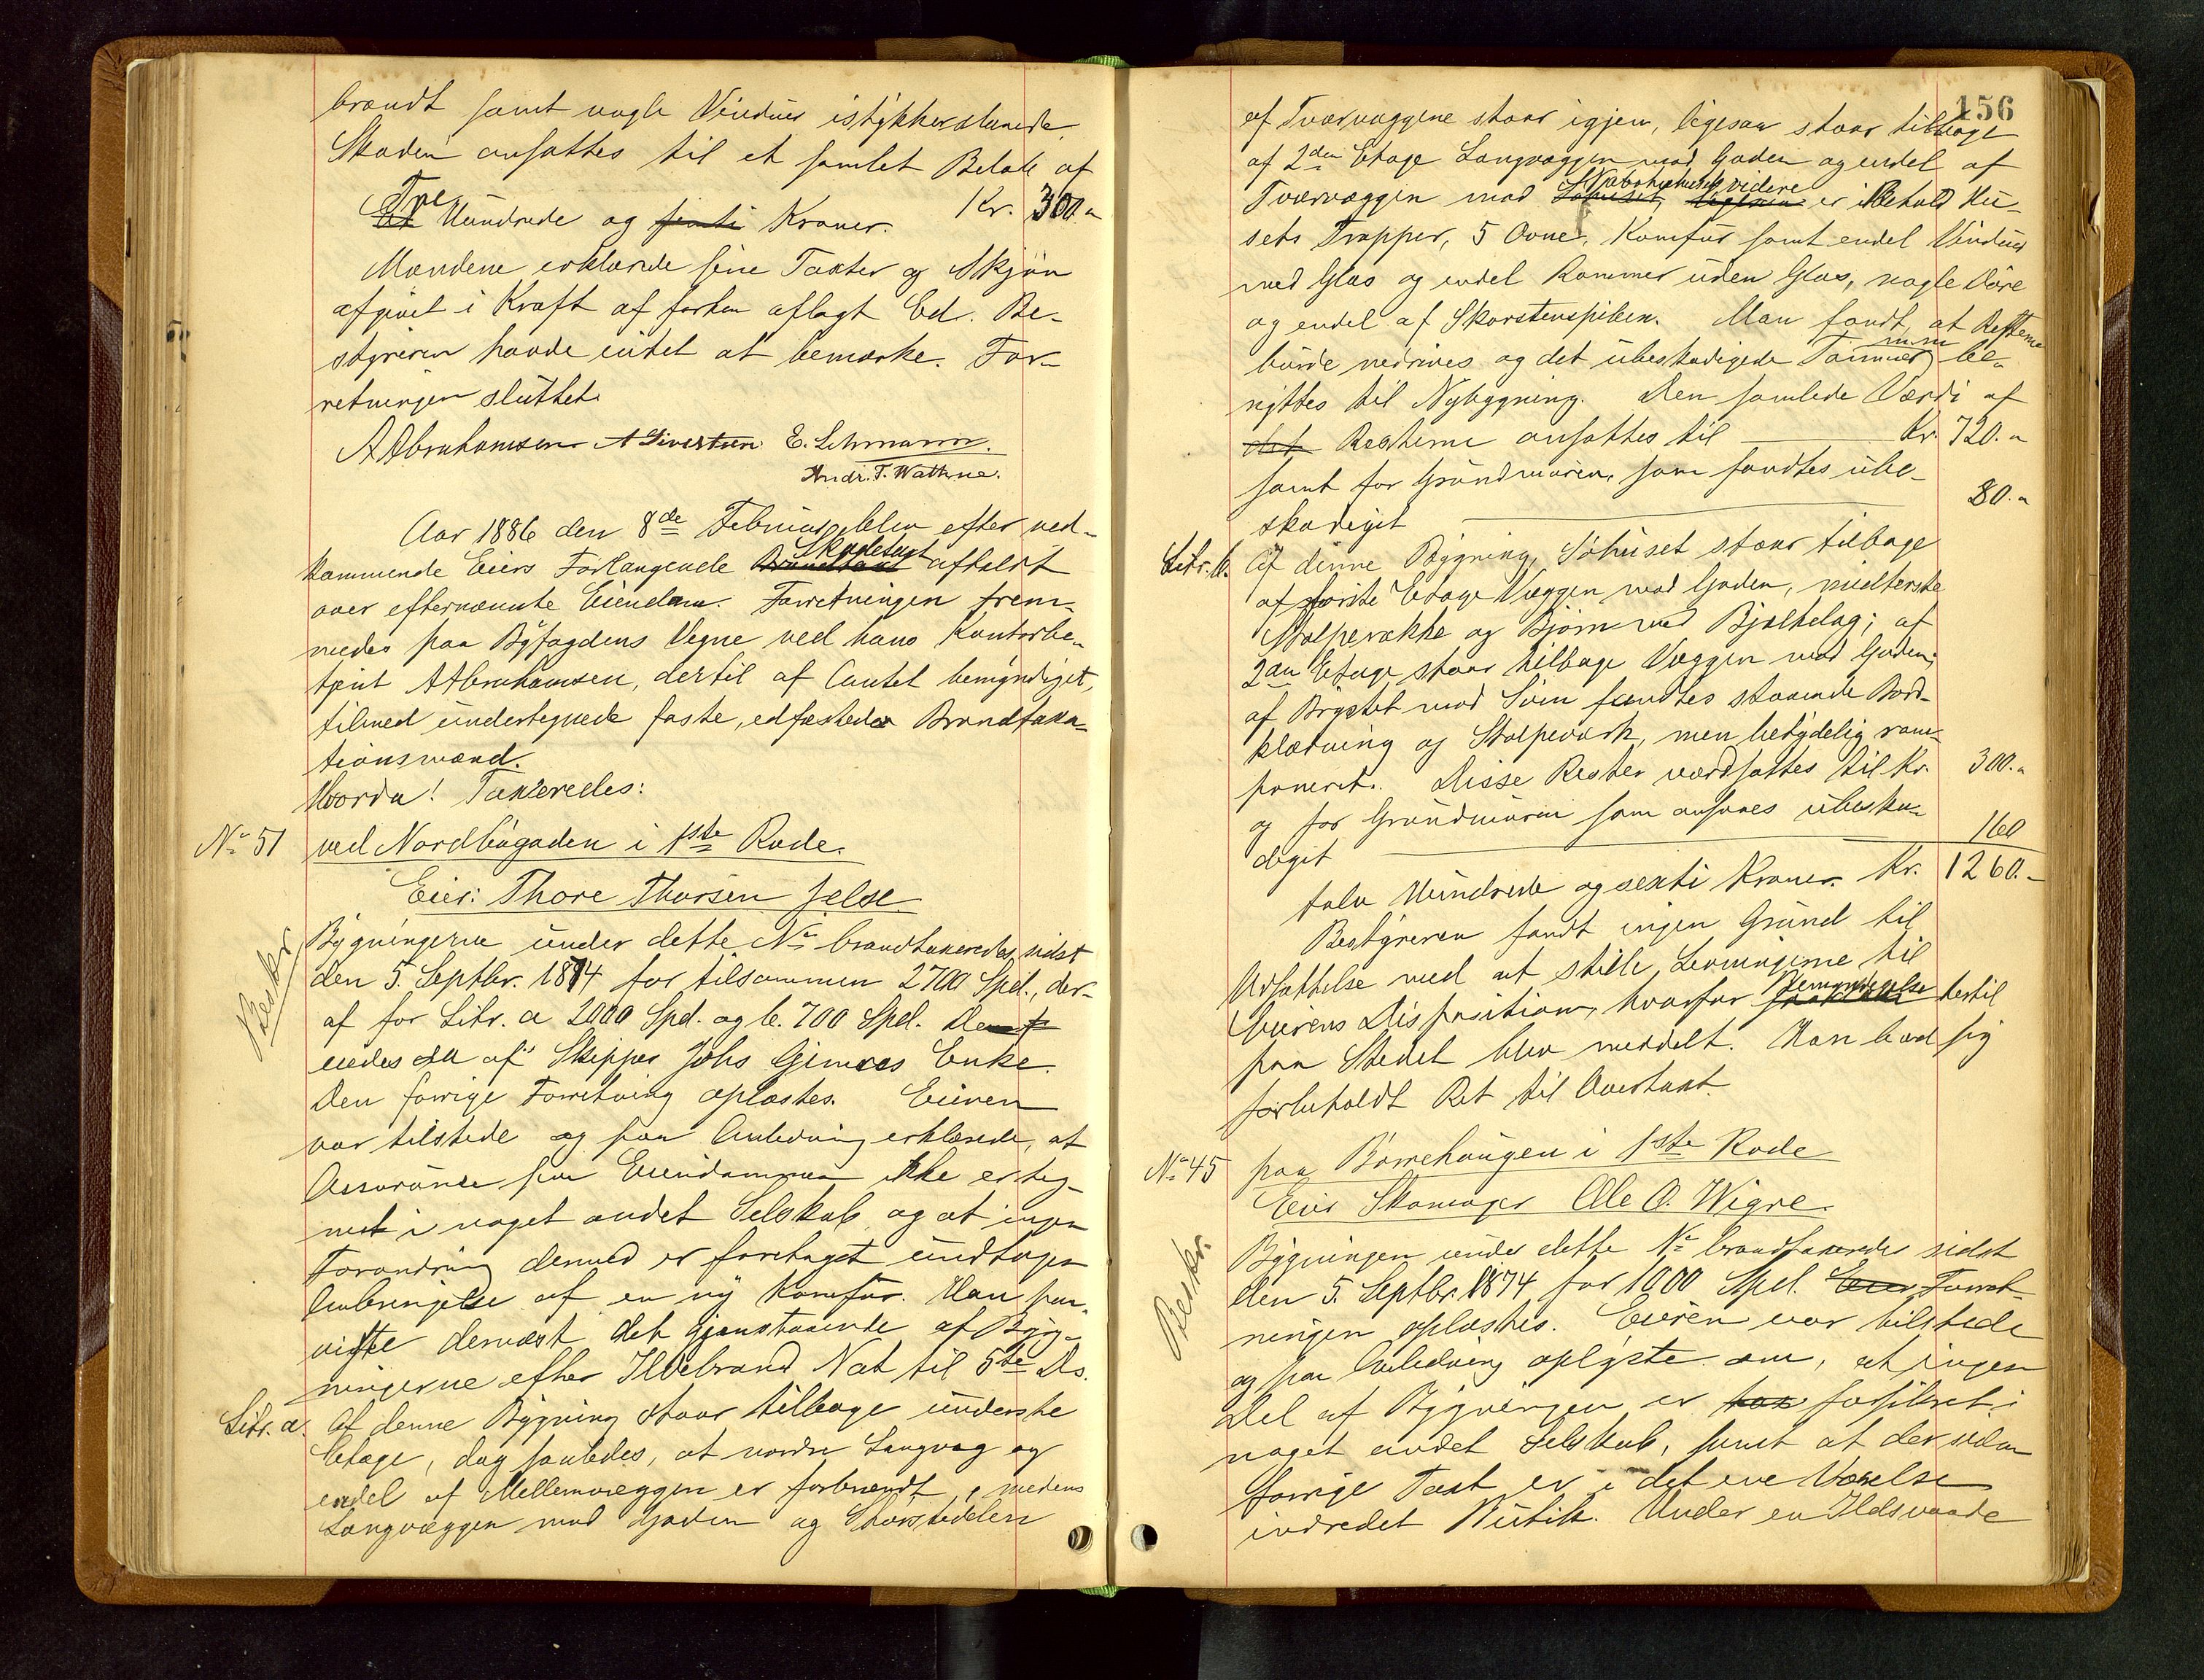 brændt samt nogle Vinduer istykkerslaaede.
Skaden ansattes til et samlet Beløb af
Tre
Et Hundrede og femti Kroner. Kr. 300.„
Mændene erklærede sine Taxter og Skjøn
afgivet i Kraft af forhen aflagt Ed. Be-
styreren havde intet at bemærke. For-
retningen sluttet.
A Abrahamsen A Sivertsen E. Lehmann.
Andr. T. Wathne.
Aar 1886 den 8de Februar blev efter ved-
Skadetaxt
kommende Eiers Forlangende Brandtaxt afholdt
over efternævnte Eiendom. Forretningen frem-
medes paa Byfogdens Vegne ved hans Kontorbe-
tjent A Abrahamsen, dertil af Amtet bemyndiget,
tilmed undertegnede faste, edfæstede Brandtaxa-
tionsmænd.
Hvorda! Taxeredes:
No 51 ved Nordbøgaden i 1ste Rode.
Eier: Thore Thorsen Jelse.
Besker.
Bygningerne under dette No brandtaxeredes sidst
den 5. Septbr. 1874 for tilsammen 2700 Spd., der-
af for Litr. a 2000 Spd. og b. 700 Spd. De
eiedes da af Skipper Johs Gjemres Enke.
Den forrige Forretning oplæstes. Eieren
var tilstede og paa Anledning erklærede, at
Assurance paa Eiendommen ikke er teg-
net i noget andet Selskab og at ingen
Forandring dermed er foretaget undtagen
Anbringelse af en ny Komfur. Han paa-
viste dernæst det gjenstaaende af Byg-
ningerne efter Ildebrand Nat til 5te Ds.
Litr. a. Af denne Bygning staar tilbage underste
Etage, dog saaledes, at nordre Langvæg og
endel af Mellemvæggen er forbrændt, medens
Langvæggen mod Gaden og Størstedelen
156
af Tværvæggene staar igjen, ligesaa staar tilbage
af 2den Etage Langvæggen mod Gaden og endel af
Nabohuset videre
Tværvæggen mod Søhuset, Ligesaa er i Behold Hu-
sets Trapper, 5 Ovne, Komfur samt endel Vinduer
med Glas og endel Rammer uden Glas, nogle Døre
og endel af Skorstenspiben. Man fandt, at Resterne
m.m
burde nedrives og det ubeskadigede Tømmer be-
nyttes til Nybygning. Den samlede Værdi af
det Resterne ansattes til Kr. 720.„
samt for Grundmuren, som fandtes ube-
skadiget 80.„
Litr. b. Af denne Bygning, Søhuset staar tilbage
af første Etage Væggen mod Gaden, midterste
Stolperække og Bjørn med Bjelkelag; af
2den Etage staar tilbage Væggen mod Gaden;
af Brystet mod Søen fandtes staaende Bord-
klædning og Stolpeværk, men betydelig ram-
poneret. Disse Rester værdsattes til Kr. 300.„
og for Grundmuren som ansaaes ubeska-
diget 160
tolv Hundrede og sexti Kroner. Kr. 1260.„
Bestyreren fandt ingen Grund til
Udsættelse med at stille Levningerne til
Bemyndigelse
Eierens Disposition, hvorfor hertil
paa Stedet blev meddelt. Han bad sig
forbeholdt Ret til Overtaxt.
No 45 paa Børrehaugen i 1ste Rode
Eier Skomager Ole O. Wigre.
Besker.
Bygningen under dette No brandtaxeredes sidst
den 5. Septbr. 1874 for 1000 Spd. Eier Forret-
ningen oplæstes. Eieren var tilstede
og paa Anledning oplyste om, at ingen
Del af Bygningen er tax forsikret i
noget andet Selskab, samt at der siden
forrige Taxt er i det ene Værelse
indredet Butik. Under en Ildsvaade